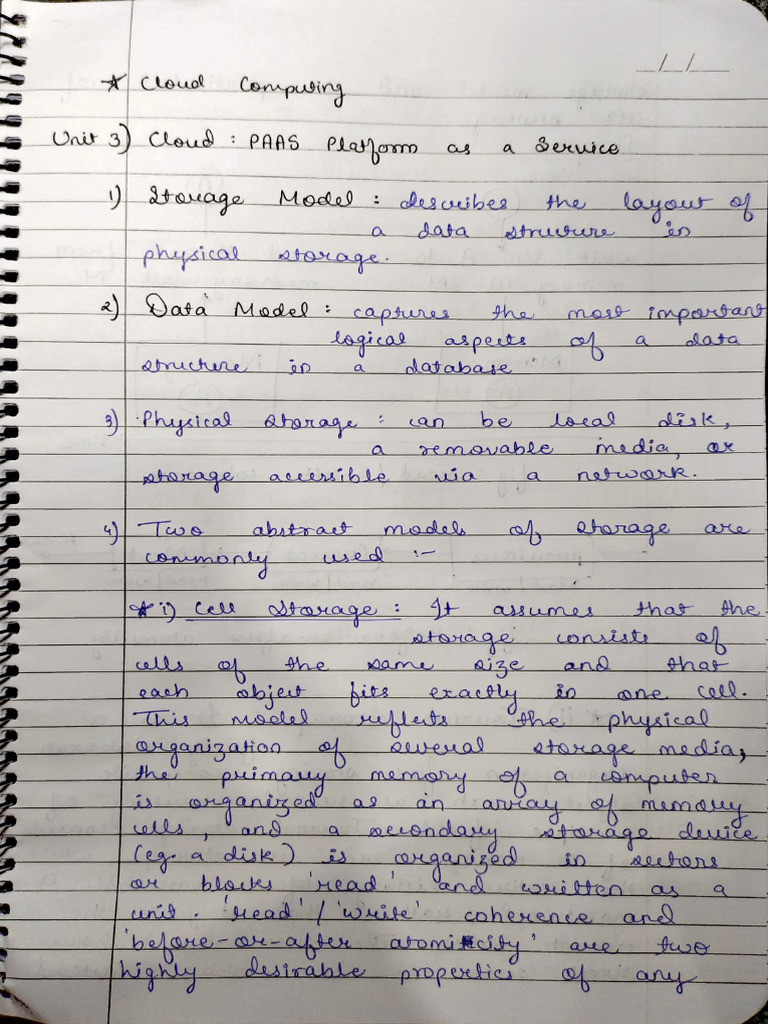 __/__/____
☆ Cloud Computing
Unit 3) Cloud : PAAS Platform as a Service
1) Storage Model : describes the layout of
a data structure in
physical storage.
2) Data Model : captures the most important
logical aspects of a data
structure in a database
3) Physical storage : can be local disk,
a removable media, or
storage accessible via a network.
4) Two abstract models of storage are
commonly used :-
☆ i) Cell Storage : It assumes that the
storage consists of
cells of the same size and that
each object fits exactly in one cell.
This model reflects the physical
organization of several storage media,
the primary memory of a computer
is organized as an array of memory
cells, and a secondary storage device
(eg. a disk) is organized in sectors
or blocks 'read' and written as a
unit. 'read' / 'write' coherence and
'before-or-after atomicity' are two
highly desirable properties of any